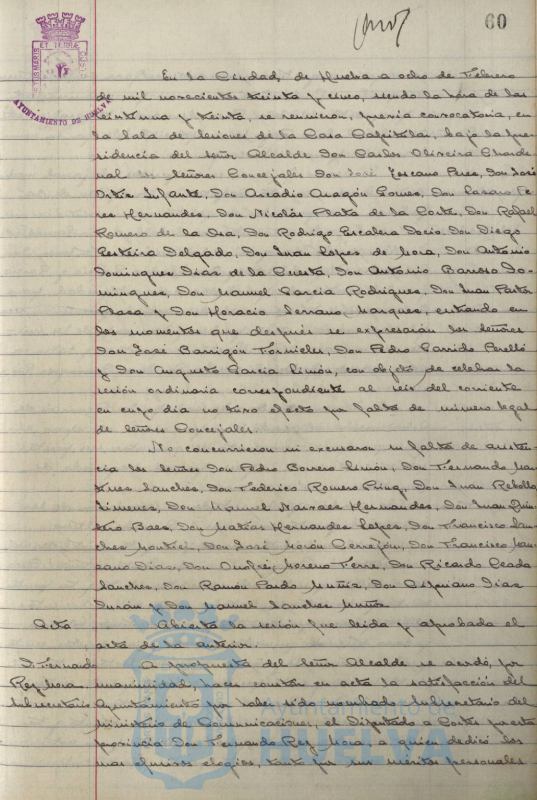 60
PORTUS MARIS ET TERRAE CUSTODIA
AYUNTAMIENTO DE HUELVA
En la Ciudad de Huelva a ocho de Febrero
de mil novecientos treinta y cinco, siendo la hora de las
veintiuna y treinta, se reunieron, previa convocatoria, en
la Sala de sesiones de la Casa Capitular, bajo la pre-
sidencia del Señor Alcalde Don Carlos Oliveira Charde-
nal los Señores Concejales Don José Toscano Perez, Don José
Ortiz Infante, Don Arcadio Aragón Gomez, Don Lazaro Pe-
rez Hernandez, Don Nicolás Plata de la Corte, Don Rafael
Romero de la Osa, Don Rodrigo Escalera Docio, Don Diego
Testeira Delgado, Don Juan Lopez de Mora, Don Antonio
Dominguez Diaz de la Cuesta, Don Antonio Barroso Do-
minguez, Don Manuel Garcia Rodriguez, Don Juan Pastor
Plaza y Don Horacio Serrano Marquez, entrando en
los momentos que después se expresarán los señores
Don José Barrigón Fornieles, Don Pedro Garrido Perelló
y Don Augusto Garcia Limón, con objeto de celebrar la
sesión ordinaria correspondiente al seis del corriente
en cuyo dia no tuvo efecto por falta de número legal
de Señores Concejales.
No concurrieron ni excusaron su falta de asisten-
cia los señores Don Pedro Borrero Limón, Don Fernando Mar-
tinez Sanchez, Don Federico Romero Puig, Don Juan Rebollo
Jimenez, Don Manuel Narvaez Hernandez, Don Juan Quin-
tero Baez, Don Matias Hernandez Lopez, Don Francisco San-
chez Montiel, Don José Morón Cerrejón, Don Francisco Man-
zano Diaz, Don Onofre Moreno Ferre, Don Ricardo Ceada
Sanchez, Don Ramón Pardo Muñiz, Don Cipriano Diaz
Durán y Don Manuel Sanchez Muñoz
Acta
Abierta la sesión fue leida y aprobada el
acta de la anterior.
D. Fernando
Rey Mora
Subsecretario
A propuesta del Señor Alcalde se acordó, por
unanimidad, hacer constar en acta la satisfacción del
Ayuntamiento por haber sido nombrado Subsecretario del
Ministerio de Comunicaciones, el Diputado a Cortes por esta
provincia Don Fernando Rey Mora, a quien dedicó los
mas efusivos elogios, tanto por sus méritos personales
Ayuntamiento de
HUELVA